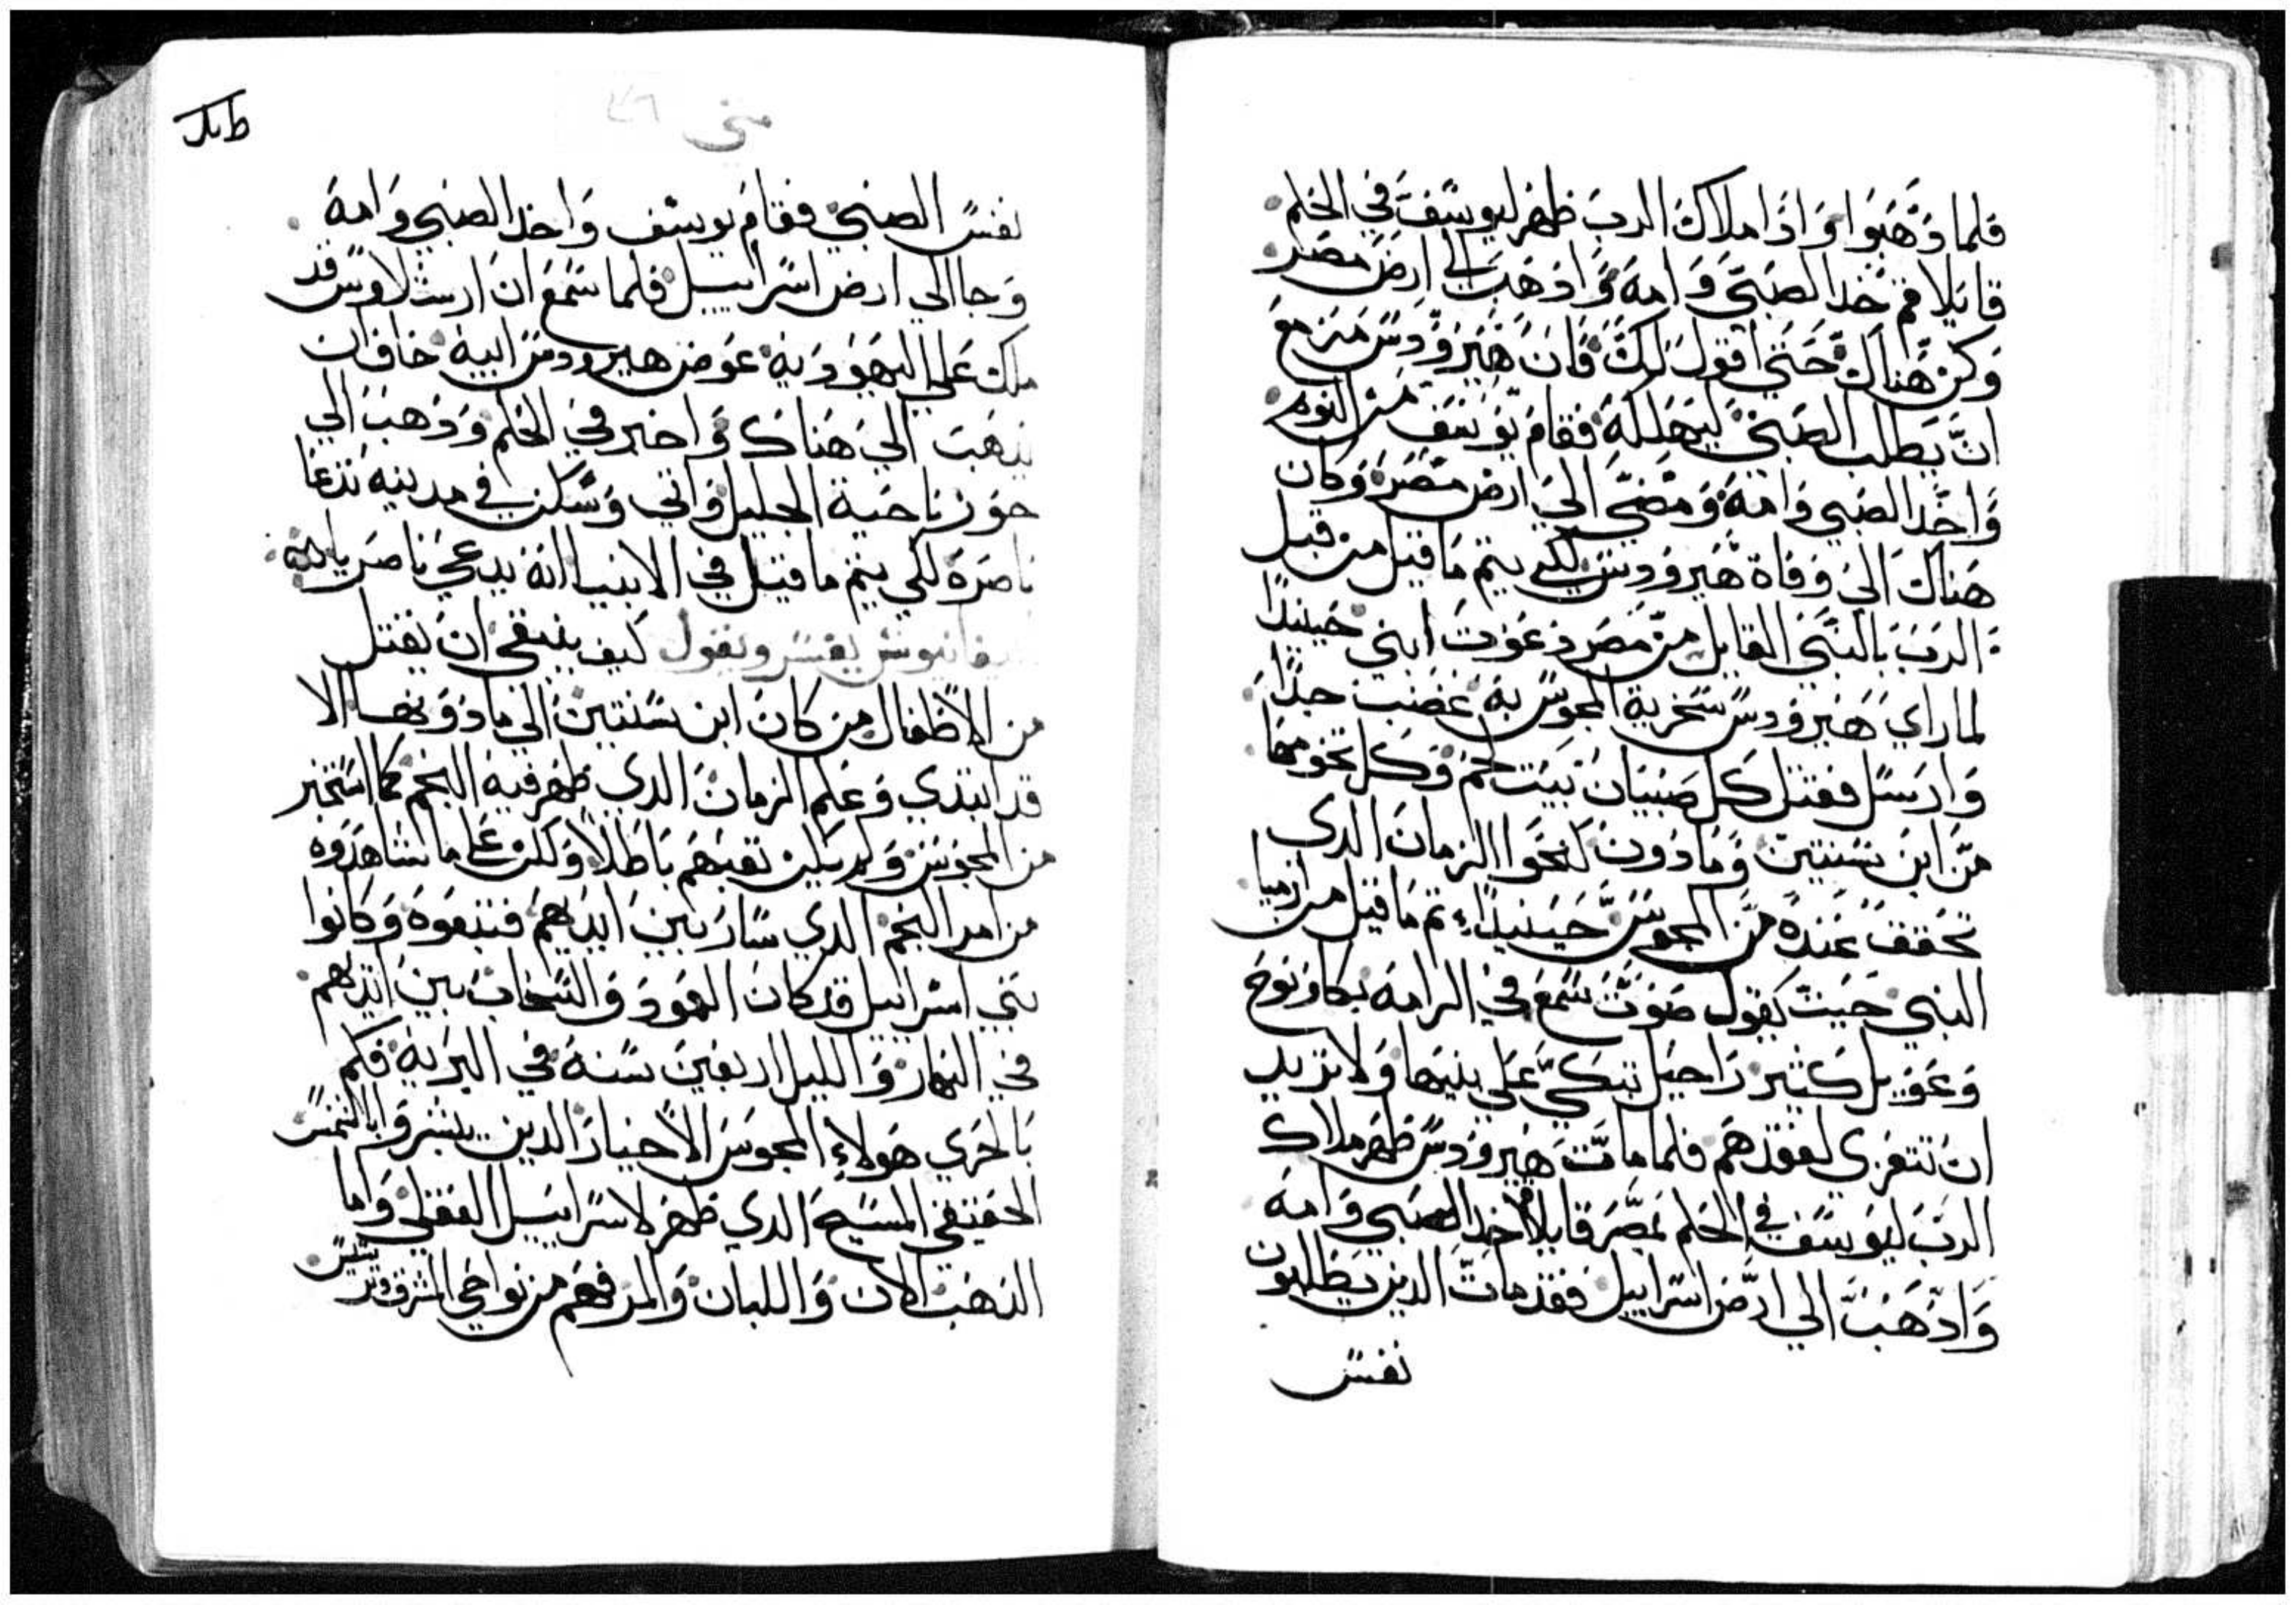 فلما ذهبوا واذا ملاك الرب ظهر ليوسف في الحلم
قايلا قم خذ الصبي وامه واذهب الي ارض مصر
وكن هناك حتي اقول لك فان هيرودس مزمع
ان يطلب الصبي ليهلكه فقام يوسف من النوم
واخذ الصبي وامه ومضي الي ارض مصر وكان
هناك الي وفاة هيرودس لكي يتم ما قيل من قبل
الرب بالنبي القايل من مصر دعوت ابني حينيدا
لما راي هيرودس سخرية المجوس به غضب جدا
وارسل فقتل كل صبيان بيت لحم وكل تخومها
من ابن سنتين وما دون كنحوا الزمان الدي
تحقق عنده من المجوس حينيدا تم ما قيل من ارميا
النبي حيت يقول صوت سمع في الرامه بكا ونوح
وعويل كثير راحيل تبكي علي بنيها ولا تريد
ان تتعزي لفقدهم فلما مات هيرودس ظهر ملاك
الرب ليوسف في الحلم بمصر قايلا قم خد الصبي وامه
واذهب الي ارض اسراييل فقد مات الدين يطلبون
نفس
متي
نفس الصبي فقام يوسف واخد الصبي وامه
وجا الي ارض اسراييل فلما سمع ان ارشلاوس قد
ملك علي اليهوديه عوض هيرودس ابيه خاف ان
يذهب الي هناك واخبر في الحلم وذهب الي
حوز ناحية الجليل واتي وسكن في مدينه تدعا
ناصرة لكي يتم ما قيل في الانبيا انه يدعي ناصريا
يفسر ويقول كيف ينبغي ان يقتل
من الاطفال من كان ابن سنتين الي ما دونها الا
قد ابتدي وعلم الزمان الدي ظهر فيه النجم كما استخبر
من المجوس ولم يكن تعبهم باطلا ولكن علي ما شاهدوه
من امر النجم الدي سار بين ايديهم فتبعوه وكانوا
بني اسراييل قد كان العمود والسحاب بين ايديهم
في النهار والليل اربعين سنة في البريه فكم
بالحري هولاء المجوس الاخيار الدين بالشمس
الحقيقي المسيح الدي ظهر لاسراييل العقلي واما
الذهب الان واللبان والمر فهم من نواحي المشرق